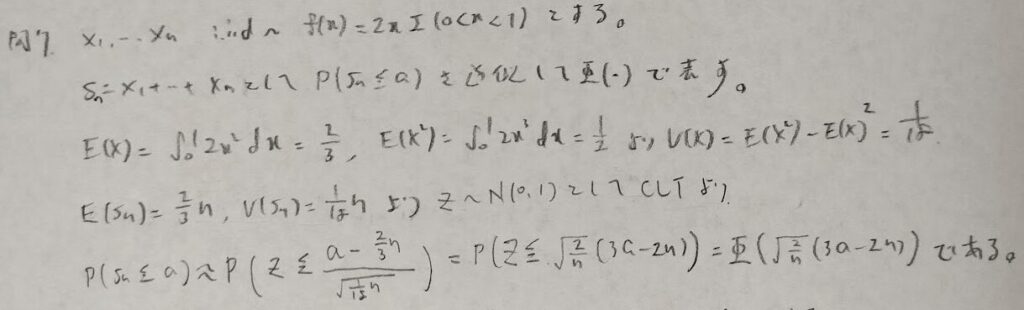 問7. X₁,…Xₙ i.i.d ~ f(x)=2x I(0<x<1) とする。
Sₙ=X₁+…+Xₙとして P(Sₙ≦a)を近似してΦ(·)で表す。
E(X)=∫₀¹2x²dx=2/3, E(X²)=∫₀¹2x³dx=1/2 より V(X)=E(X²)-E(X)²=1/18.
E(Sₙ)=2/3n, V(Sₙ)=1/18n より Z~N(0,1)として CLTより
P(Sₙ≦a)≈P(Z≦(a-2/3n)/√(1/18n))=P(Z≦√(2/n)(3a-2n))=Φ(√(2/n)(3a-2n))である。